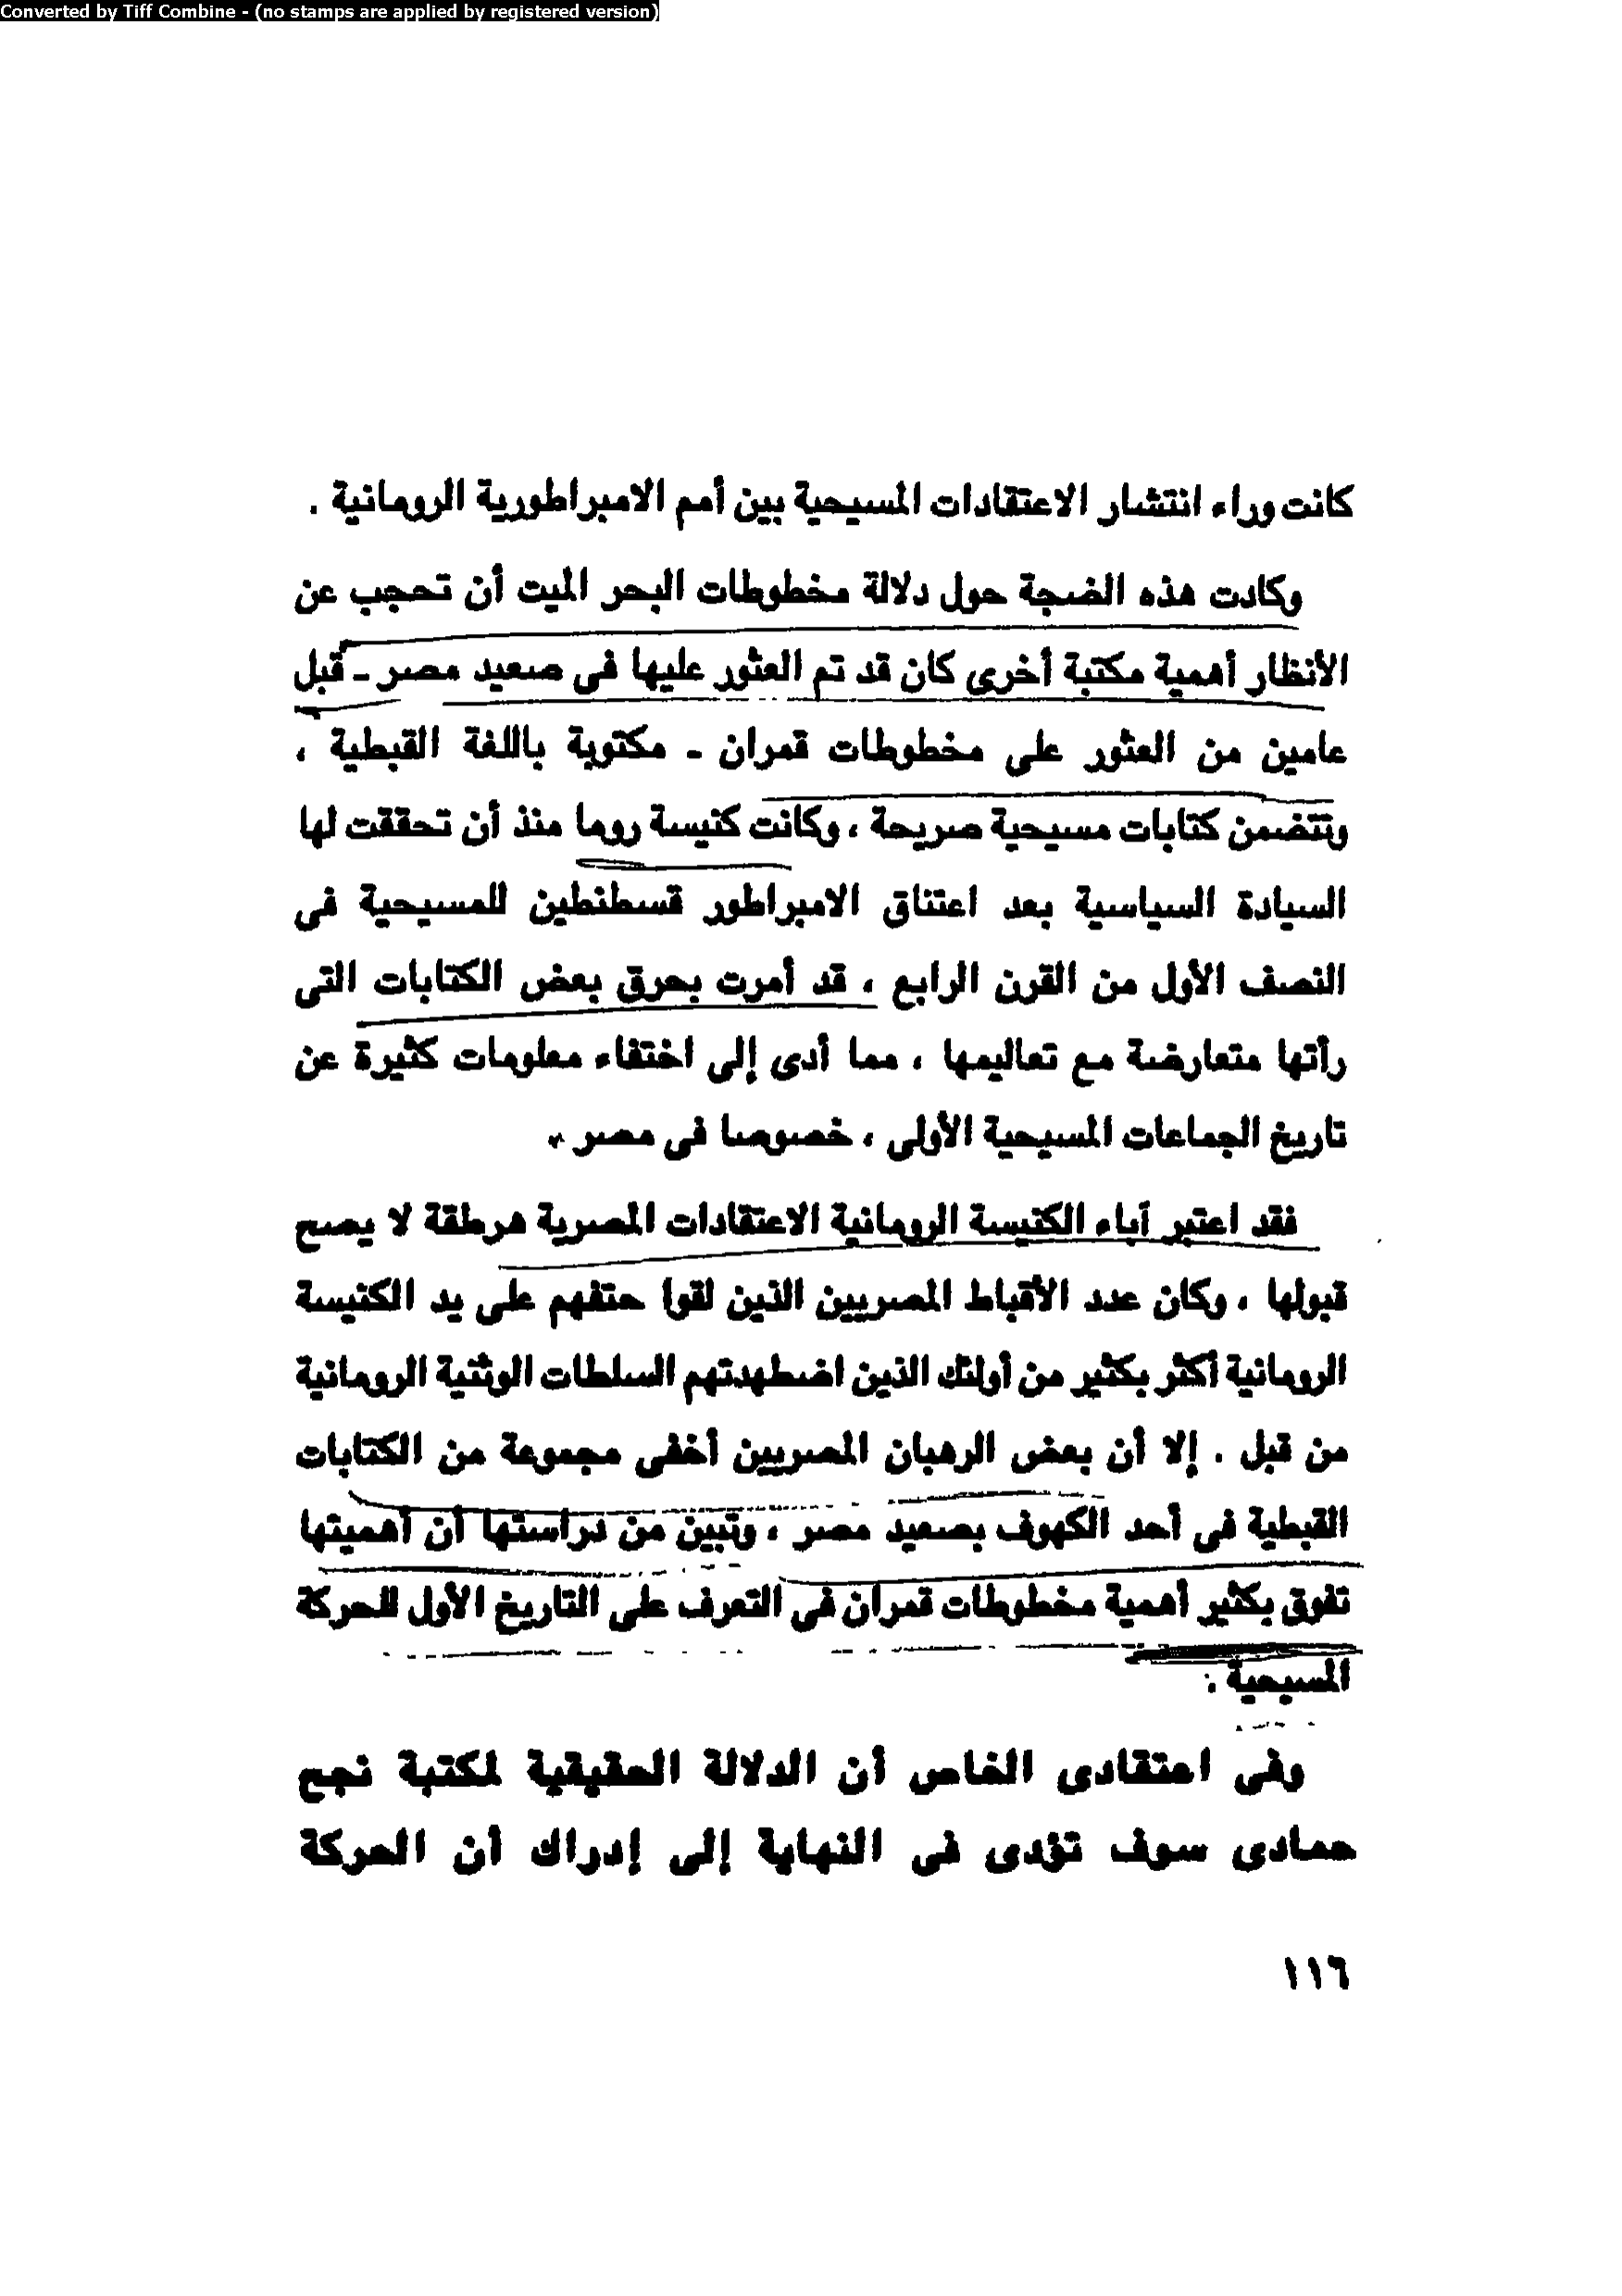 Converted by Tiff Combine - (no stamps are applied by registered version)
كانت وراء انتشار الاعتقادات المسيحية بين أمم الامبراطورية الرومانية .
وكادت هذه الضجة حول دلالة مخطوطات البحر الميت أن تحجب عن
الأنظار أهمية مكتبة أخرى كان قد تم العثور عليها فى صعيد مصر ـ قبل
عامين من العثور على مخطوطات قمران ـ مكتوبة باللغة القبطية ،
وتتضمن كتابات مسيحية صريحة ، وكانت كنيسة روما منذ أن تحققت لها
السيادة السياسية بعد اعتناق الامبراطور قسطنطين للمسيحية فى
النصف الأول من القرن الرابع ، قد أمرت بحرق بعض الكتابات التى
رأتها متعارضة مع تعاليمها ، مما أدى إلى اختفاء معلومات كثيرة عن
تاريخ الجماعات المسيحية الأولى ، خصوصا فى مصر .
فقد اعتبر آباء الكنيسة الرومانية الاعتقادات المصرية هرطقة لا يصح
قبولها ، وكان عدد الأقباط المصريين الذين لقوا حتفهم على يد الكنيسة
الرومانية أكثر بكثير من أولئك الذين اضطهدتهم السلطات الوثنية الرومانية
من قبل . إلا أن بعض الرهبان المصريين أخفى مجموعة من الكتابات
القبطية فى أحد الكهوف بصعيد مصر ، وتبين من دراستها أن أهميتها
تفوق بكثير أهمية مخطوطات قمران فى التعرف على التاريخ الأول للحركة
المسيحية .
وفى اعتقادى الخاص أن الدلالة الحقيقية لمكتبة نجع
حمادى سوف تؤدى فى النهاية إلى إدراك أن الحركة
١١٦